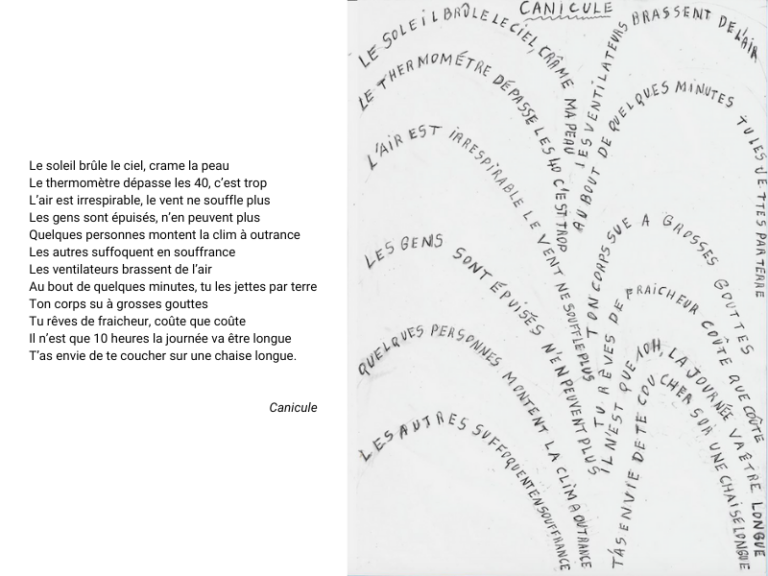 Le soleil brûle le ciel, crame la peau
Le thermomètre dépasse les 40, c'est trop
L'air est irrespirable, le vent ne souffle plus
Les gens sont épuisés, n'en peuvent plus
Quelques personnes montent la clim à outrance
Les autres suffoquent en souffrance
Les ventilateurs brassent de l'air
Au bout de quelques minutes, tu les jettes par terre
Ton corps su à grosses gouttes
Tu rêves de fraicheur, coûte que coûte
Il n'est que 10 heures la journée va être longue
T'as envie de te coucher sur une chaise longue.
Canicule
CANICULE
LE SOLEIL BRÛLE LE CIEL, CRÂME MA PEAU
LE THERMOMÉTRE DÉPASSE LES 40 C'EST TROP
L'AIR EST IRRESPIRABLE LE VENT NE SOUFFLE PLUS
LES GENS SONT ÉPUISÉS N'EN PEUVENT PLUS
QUELQUES PERSONNES MONTENT LA CLIM A OUTRANCE
LES AUTRES SUFFOQUENT EN SOUFFRANCE
LES VENTILATEURS BRASSENT DE L'AIR
AU BOUT DE QUELQUES MINUTES TU LES JETTES PAR TERRE
TON CORPS SUE A GROSSES GOUTTES
TU RÊVES DE FRAICHEUR COÛTE QUE COÛTE
IL N'EST QUE 10H, LA JOURNÉE VA ETRE LONGUE
T'AS ENVIE DE TE COUCHER SUR UNE CHAISE LONGUE